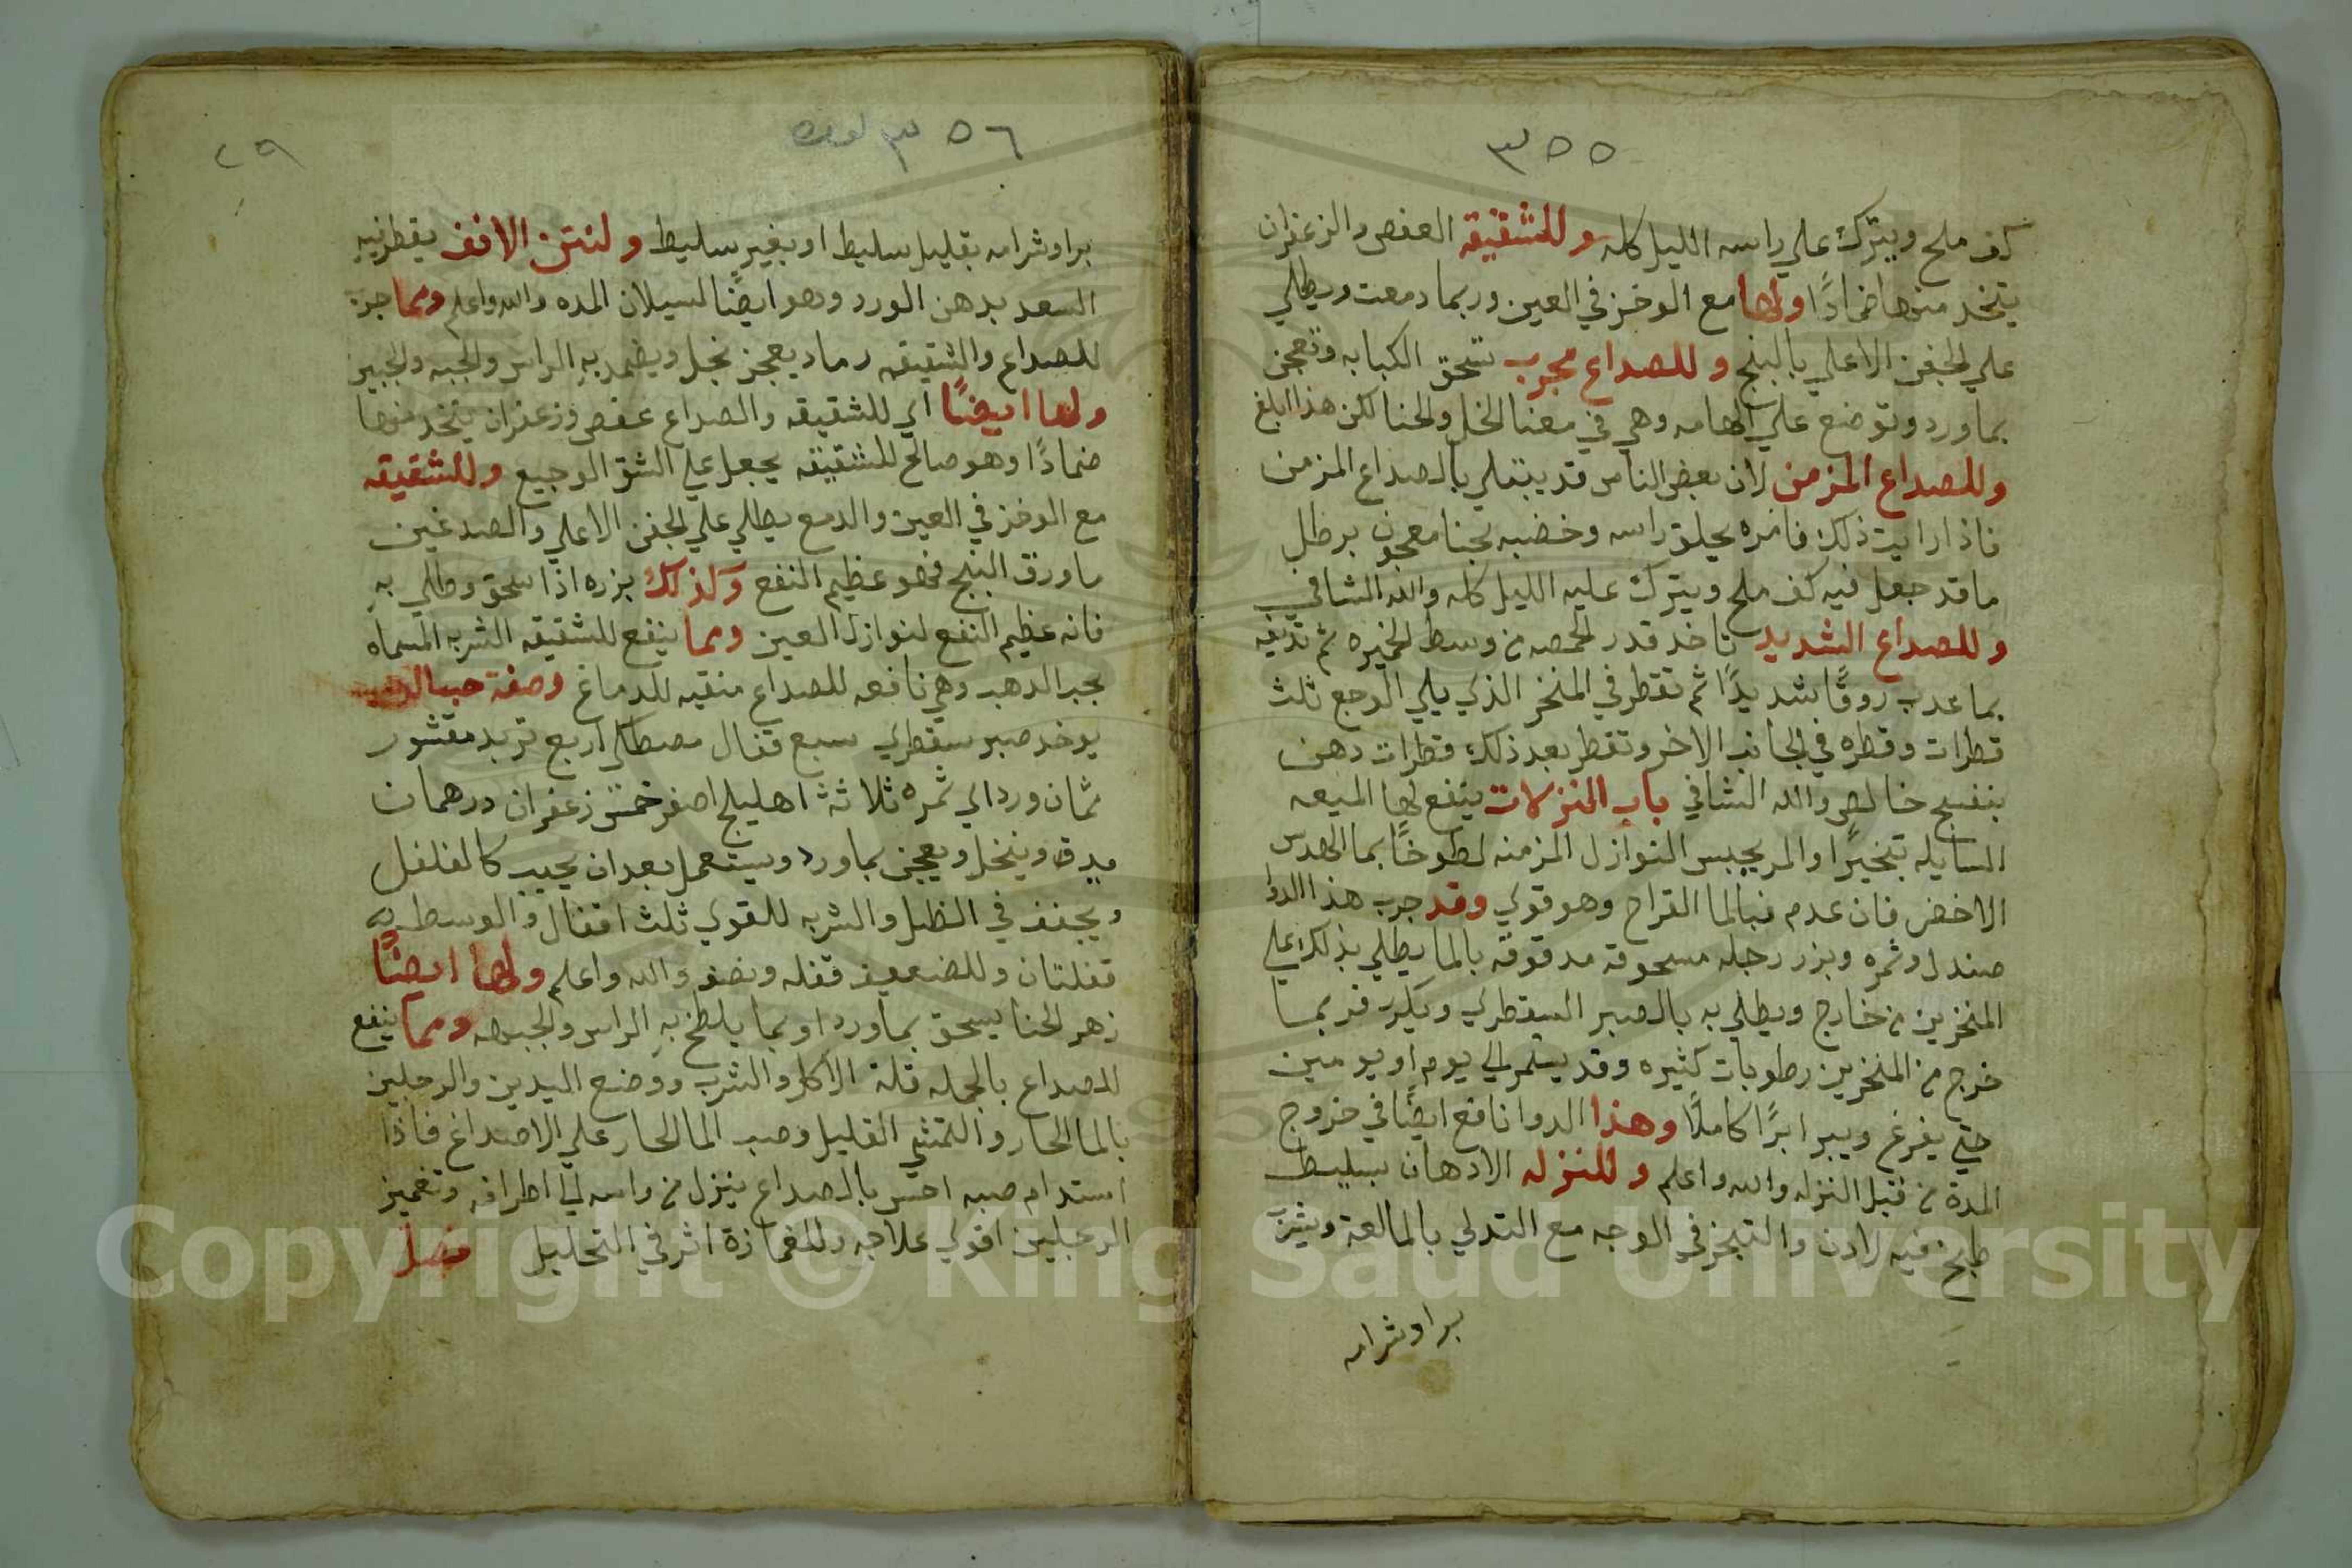 ٣٥٥
كف ملح ويترك علي راسه الليل كله وللشقيقه العفص والزعفران
يتخد منها ضمادًا ولها مع الوخز في العين وربما دمعت ويطلي
علي الجفن الاعلي بالبنج وللصداع مجرب تسحق الكبابه وتعجن
بماورد وتوضع علي الهامه وهي في معنا الخل والحنا لكن هذا ابلغ
وللصداع المزمن لان بعض الناس قد يبتلي بالصداع المزمن
فاذا رايت ذلك فامره بحلق راسه وخضبه بحنا معجون برطل
ما قد جعل فيه كف ملح ويترك عليه الليل كله والله الشافي
وللصداع الشديد تاخد قدر الحمصه من وسط الخميره ثم تديفه
بما عدب روقًا شديدًا ثم تقطر في المنخر الذي يلي الوجع ثلث
قطرات وقطره في الجانب الاخر وتقطر بعد ذلك قطرات دهن
بنفسج خالص والله الشافي باب النزلات ينفع لها الميعه
السايله تبخيرًا والمر يحبس النوازل المزمنه لطوخًا بما الهدس
الاخضر فان عدم فبالما القراح وهو قوي وقد جرب هذا الدوا
صندل وثمره وبزر رجله مسحوقة مدقوقة بالما يطلي بذلك علي
المنخرين من خارج ويطلي به بالصبر السقطري ويكرر فربما
خرج من المنخرين رطوبات كثيره وقد يستمر الي يوم او يومين
حتي يفرغ ويبرا برًا كاملًا وهذا الدوا نافع ايضًا في خروج
المدة من قبل النزله والله واعلم وللنزله الادهان بسليط
طبخ فيه لادن والتبخر في الوجه مع التدلي بالمالعة ويشرب
براوشرامه
٣٥٦
٢٩
براوشرامه بقليل سليط او بغير سليط ولنتن الانف يقطر فيه
السعد بدهن الورد وهو ايضًا لسيلان المده والله واعلم ومما جرب
للصداع والشقيقه رماد يعجن بخل ويضمد به الراس والجبه والجبين
ولها ايضًا اي للشقيقه والصداع عفص وزعفران يتخد منها
ضمادًا وهو صالح للشقيقه يجعل علي الشق الوجيع وللشقيقه
مع الوخز في العين والدمع يطلي علي الجفن الاعلي والصدغين
ما ورق البنج فهو عظيم النفع وكذلك بزره اذا سحق وطلي به
فانه عظيم النفع لنوازل العين ومما ينفع للشقيقه الشربه المسماه
بحب الدهب وهي نافعه للصداع منقيه للدماغ وصفة حب الدهب
يوخد صبر سقطري سبع قفال مصطكي اربع تربد مقشور
ثمان ورد الي ثمره ثلاثة اهليلج اصفر خمس زعفران درهمان
يدق وينخل ويعجن بماورد ويستعمل بعد ان يحبب كالفلفل
ويجفف في الظل والشربه للقوي ثلث اقفال والوسط به
قفلتان وللضعيف قفله ونصف والله واعلم ولها ايضًا
زهر الحنا يسحق بماورد او بما يلطخ به الراس والجبهه ومما ينفع
للصداع بالجمله قلة الاكل والشرب ووضع اليدين والرجلين
بالما الحار والتمشي القليل وصب الما الحار علي الاصداغ فاذا
استدام صبه احس بالصداع ينزل من راسه الي اطرافه وتغميز
الرجلين اقوي علاجه وللغمازة اثر في التحليل فصل
Copyright © King Saud University